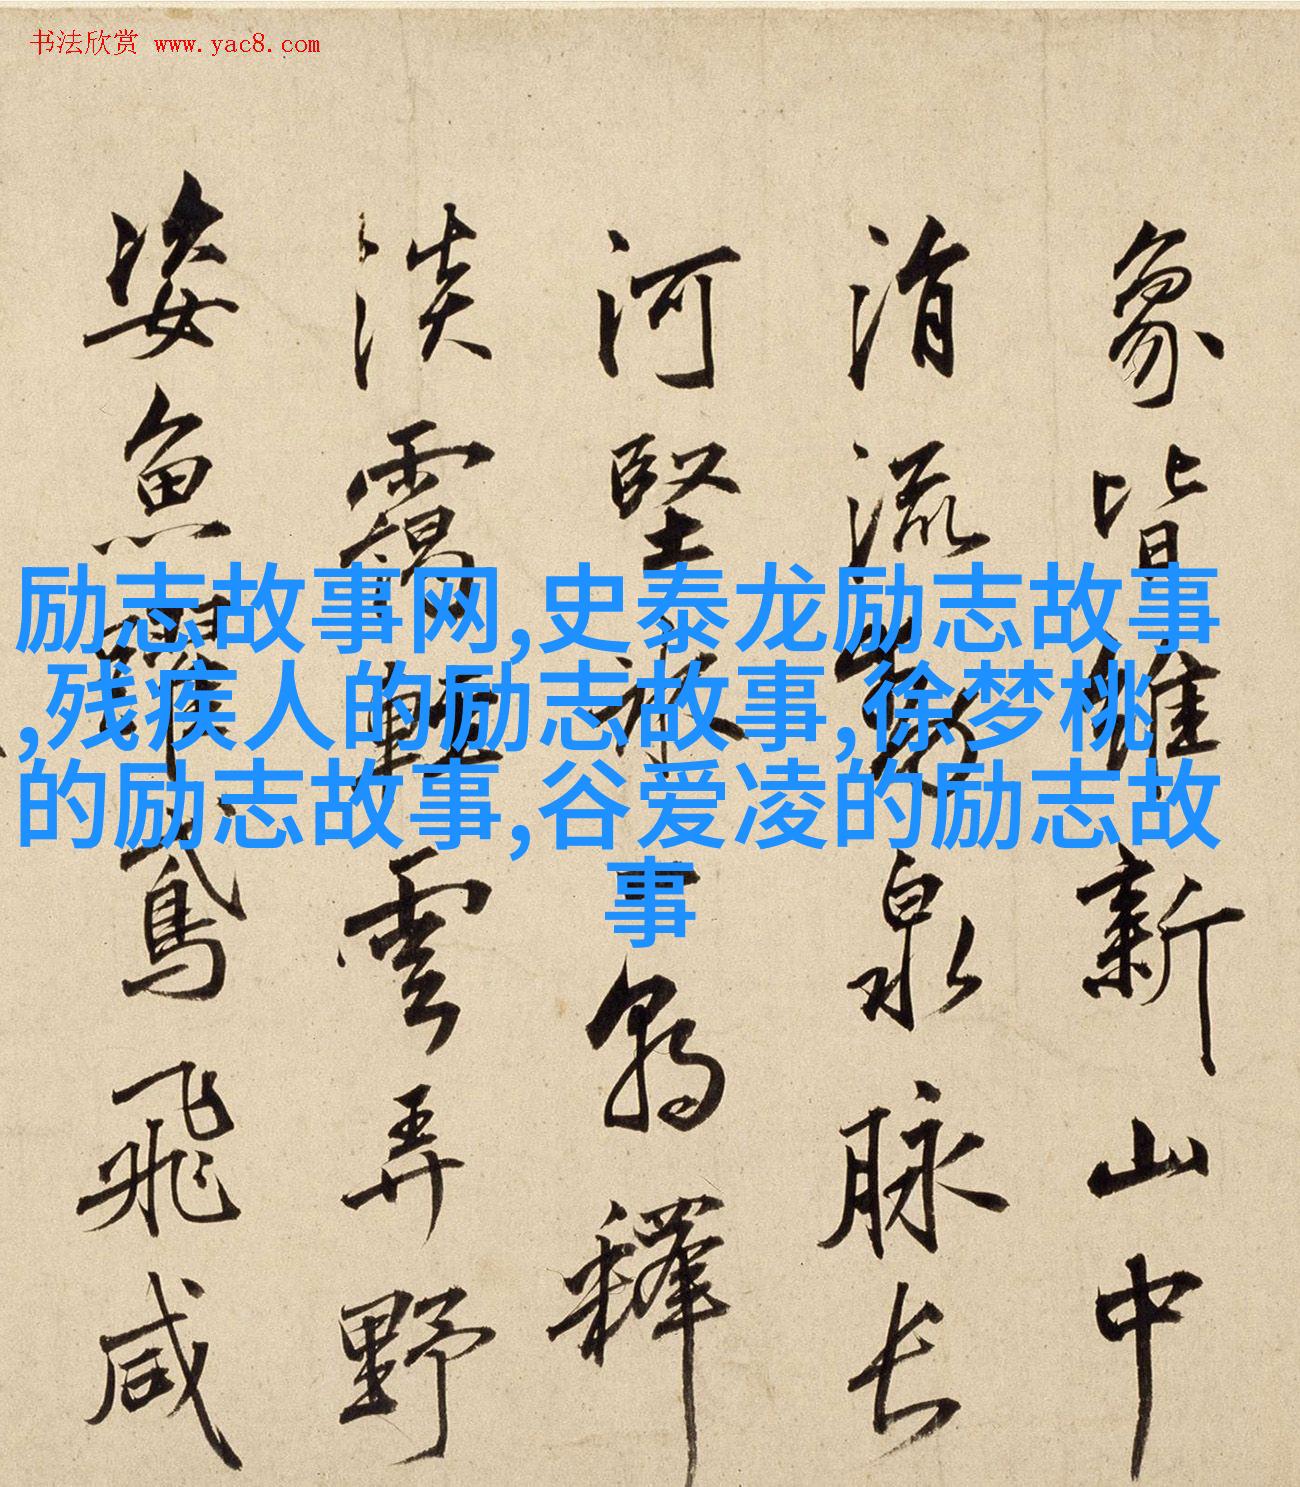 书法欣赏 www.yac8.com
励志故事网,史泰龙励志故事
,残疾人的励志故事,徐梦桃
的励志故事,谷爱凌的励志故
事
象皆惟新山中
涓流 泉脉长
河堅冰 釋
淡靄輕雲弄野
姿魚躍鳶飛咸